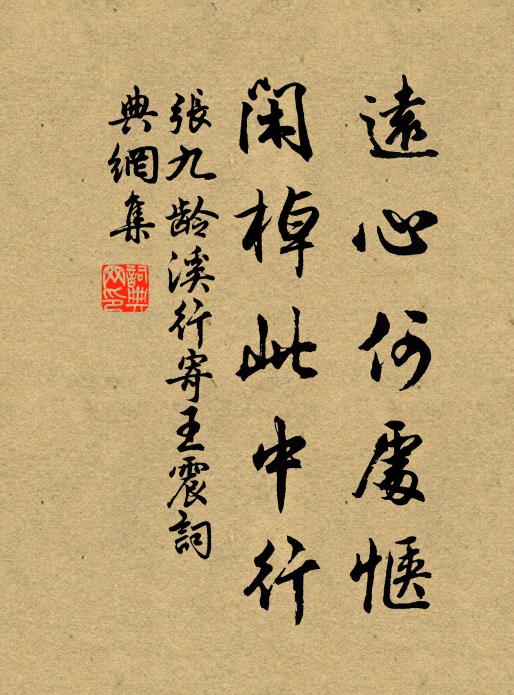 遠心何處愜
閑棹此中行
張九齡溪行寄王震詞
典網集
詞典
网印